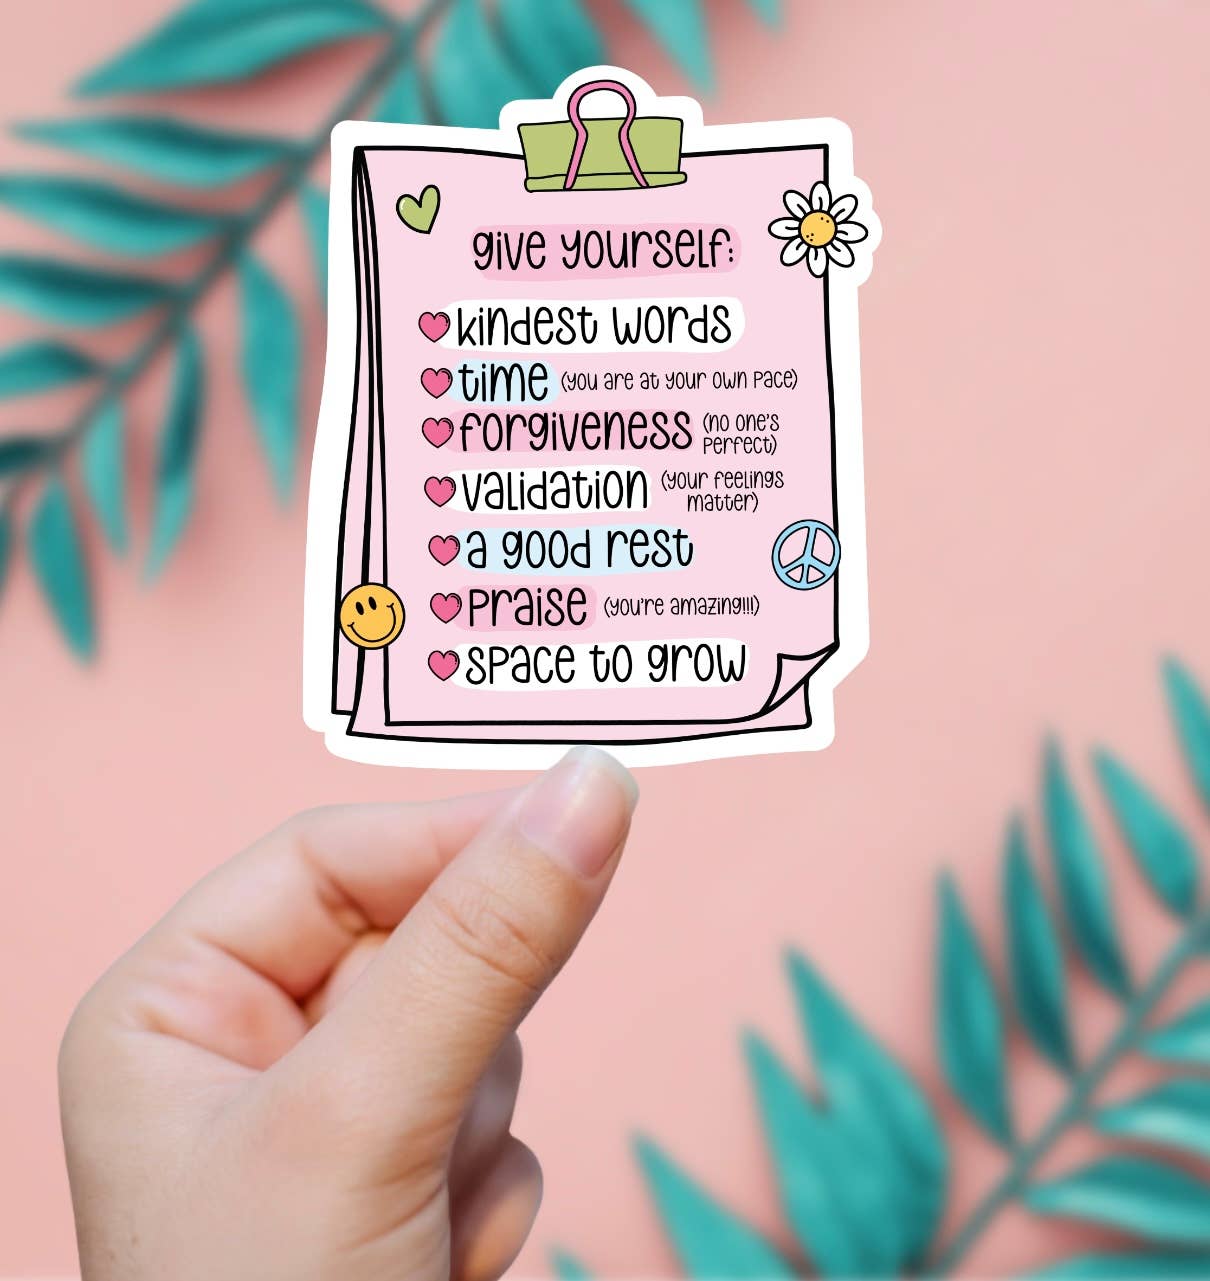 give yourself:
kindest words
time (you are at your own pace)
forgiveness (no one's
perfect)
validation (your feelings
matter)
a good rest
praise (you're amazing!!!)
space to grow